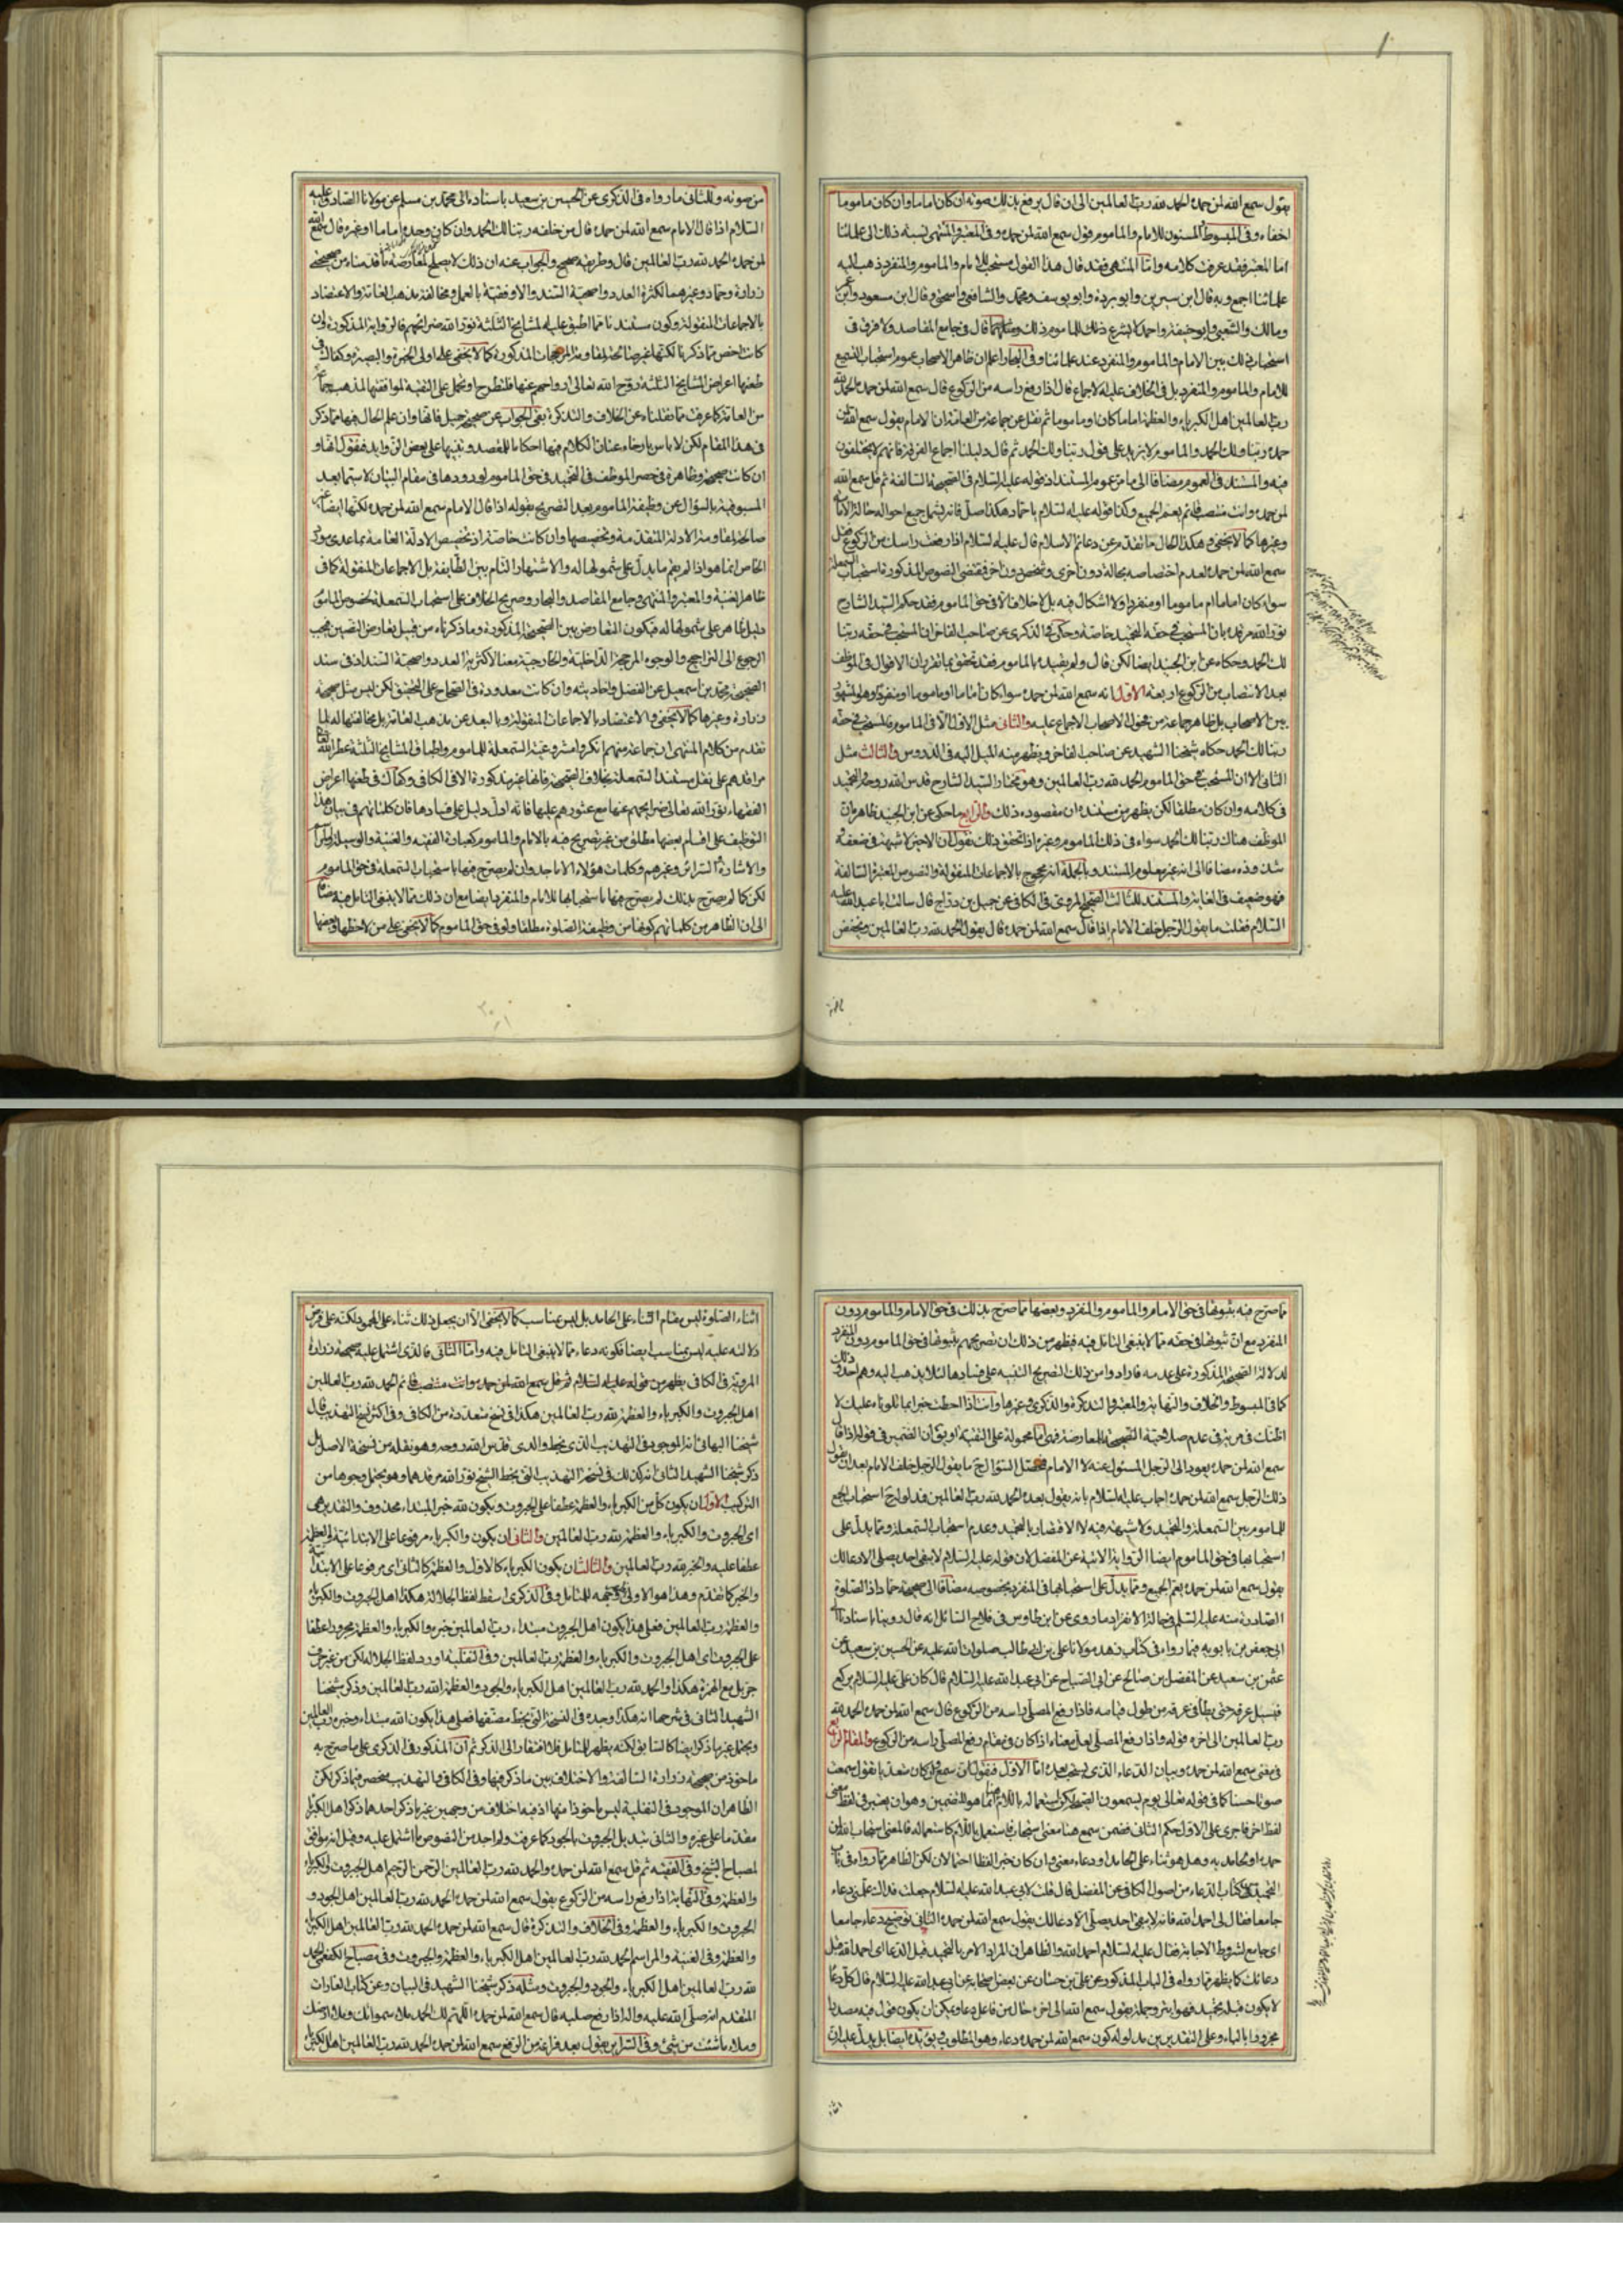 يقول سمع الله لمن حمده الحمد لله رب العالمين الى ان قال يرفع بذلك صوته ان كان اماما وان كان ماموما
اخفاه وفى المبسوط المسنون للامام والماموم قول سمع الله لمن حمده وفى المعتبر والمنتهى نسبة ذلك الى علمائنا
اما المعتبر فقد عرفت كلامه واما المنتهى فقد قال هذا القول مستحب للامام والماموم والمنفرد ذهب اليه
علمائنا اجمع وبه قال ابن سيرين وابو بردة وابو يوسف ومحمد والشافعى واسحق وقال ابن مسعود وابن عمر
ومالك والشعبى وابو حنيفة واحمد لا يشرع ذلك للماموم قال فى جامع المقاصد ولا فرق فى
استحباب ذلك بين الامام والماموم والمنفرد عند علمائنا وفى البحار اعلم ان ظاهر الاصحاب عموم استحباب التسميع
للامام والماموم والمنفرد بل فى الخلاف عليه الاجماع قال اذا رفع راسه من الركوع قال سمع الله لمن حمده الحمد لله
رب العالمين اهل الكبرياء والعظمة اماما كان او ماموما ثم نقل عن جماعة من العامة ان الامام يقول سمع الله لمن
حمده ربنا ولك الحمد والماموم لا يزيد على قول ربنا ولك الحمد ثم قال دليلنا اجماع الفرقة فانهم لا يختلفون
فيه والمستند فى العموم مضافا الى ما مر عموم المستند اذ قوله عليه السلام فى الصحيحة السالفة ثم قل سمع الله
لمن حمده وانت منتصب قائم يعم الجميع وكذا قوله عليه السلام يا حماد هكذا صل فانه يشمل جميع احواله
وغيرها كما لا يخفى وهكذا الحال ما تقدم عن دعائم الاسلام قال عليه السلام اذا رفعت راسك من الركوع فقل
سمع الله لمن حمده لعدم اختصاصه بحالة دون اخرى وشخص دون اخر فمقتضى النصوص المذكورة استحباب السمعلة
سواء كان اماما ام ماموما او منفردا ولا اشكال فيه بل لا خلاف الا فى حق الماموم فقد حكم السيد الشارح
نور الله مرقده بان المستحب فى حقه التحميد خاصة وحكى فى الذكرى عن صاحب الفاخر ان المستحب فى حقه ربنا
لك الحمد وحكاه عن ابن الجنيد ايضا لكن قال ولم يقيده بالماموم فقد تحقق بما تقرر ان الاقوال فى الموظف
بعد الانتصاب من الركوع اربعة الاول انه سمع الله لمن حمده سواء كان اماما او ماموما او منفردا وهو المشهور
بين الاصحاب بل ظاهر جماعة من فحول الاصحاب الاجماع عليه والثانى مثل الاول الا فى الماموم فالمستحب فى حقه
ربنا لك الحمد حكاه شيخنا الشهيد عن صاحب الفاخر ويظهر منه الميل اليه فى الدروس والثالث مثل
الثانى الا ان المستحب فى حق الماموم الحمد لله رب العالمين وهو مختار السيد الشارح قدس الله روحه
فى كلامه وان كان مطلقا لكن يظهر من مستنده ان مقصوده ذلك والرابع ما حكى عن ابن الجنيد فظاهره ان
الموظف هناك ربنا لك الحمد سواء فى ذلك الماموم وغيره اذا تحقق ذلك نقول ان الاخير لا شبهة فى ضعفه
شذوذه مضافا الى انه غير معلوم المستند وبالجملة انه محجوج بالاجماعات المنقولة والنصوص المعتبرة السالفة
فهو ضعيف فى الغاية والمستند للثالث الصحيح المروى فى الكافى عن جميل بن دراج قال سالت ابا عبد الله عليه
السلام فقلت ما يقول الرجل خلف الامام اذا قال سمع الله لمن حمده قال يقول الحمد لله رب العالمين ويخفض
من صوته وللثانى ما رواه فى الذكرى عن الحسين بن سعيد باسناده الى محمد بن مسلم عن مولانا الصادق عليه
السلام اذا قال الامام سمع الله لمن حمده قال من خلفه ربنا لك الحمد وان كان وحده اماما او غيره قال سمع الله
لمن حمده الحمد لله رب العالمين قال وطريقه صحيح والجواب عنه ان ذلك لا يصلح لمعارضة ما قدمناه من صحيحة
زرارة وحماد وغيرهما لكثرة العدد واصحية السند والاوفقية بالعمل ومخالفة مذهب العامة والاعتضاد
بالاجماعات المنقولة وكون مستندنا مما اطبق عليه المشايخ الثلثة نور الله ضرائحهم فالرواية المذكورة وان
كانت اخص مما ذكرنا لكنها غير صالحة لمقاومة المرجحات المذكورة كما لا يخفى على اولى الخبرة والبصيرة وكفاك فى
طعنها اعراض المشايخ الثلثة روح الله تعالى ارواحهم عنها فلتطرح او تحمل على التقية لموافقتها لمذهب جماعة
من العامة كما عرفت مما نقلناه عن الخلاف والتذكرة بقى الجواب عن صحيحة جميل فانها وان علم الحال فيها مما ذكر
فى هذا المقام لكن لا باس بارخاء عنان الكلام فيها احكاما للمقصد وتنبيها على بعض الزوايد فنقول انها و
ان كانت صحيحة وظاهرة فى حصر الموظف فى التحميد فى حق الماموم لورودها فى مقام البيان لا سيما بعد
المسبوقية بالسؤال عن وظيفة الماموم بعد التصريح بقوله اذا قال الامام سمع الله لمن حمده لكنها ايضا غير
صالحة لمقاومة الادلة المتقدمة وتخصيصها وان كانت خاصة اذ تخصيص الادلة العامة بما عدى مورد
الخاص انما هو اذا لم يقم ما يدل على شمولها له والاشتهار التام بين الطايفة بل الاجماعات المنقولة كاف
ظاهر الغنية والمعتبر والمنتهى وجامع المقاصد والبحار وصريح الخلاف على استحباب السمعلة لخصوص الماموم
دليل ظاهر على شمولها له فيكون التعارض بين الصحيحة المذكورة وما ذكرناه من قبيل تعارض النصين فيجب
الرجوع الى التراجيح والوجوه المرجحة الداخلية والخارجية معنا لاكثرية العدد واصحية السند اذ فى سند
الصحيحة محمد بن اسمعيل عن الفضل واحاديثه وان كانت معدودة فى الصحاح على التحقيق لكن ليس مثل صحيحة
زرارة وغيرها كما لا يخفى والاعتضاد بالاجماعات المنقولة والبعد عن مذهب العامة بل مخالفتها له لما
تقدم من كلام المنتهى ان جماعة منهم انكروا مشروعية السمعلة للماموم واطباق المشايخ الثلثة عطر الله
مراقدهم على نقل مستند السمعلة بخلاف الصحيحة فانها غير مذكورة الا فى الكافى وكفاك فى طعنها اعراض
الفقهاء نور الله تعالى ضرائحهم عنها مع عثورهم عليها فانه ادل دليل على فسادها فان كلماتهم فى بيان هذا
التوظيف على اقسام بعضها مطلق من غير تصريح فيه بالامام والماموم كعبارة الفقيه والغنية والوسيلة
والاشارة والسرائر وغيرهم وكلمات هؤلاء الاماجد وان لم يصرح فيها باستحباب السمعلة فى حق الماموم
لكن كما لم يصرح بذلك لم يصرح فيها باستحبابها للامام والمنفرد ايضا مع ان ذلك مما لا ينبغى التامل فيه مضافا
الى ان الظاهر من كلماتهم كونها من وظيفة الصلوة مطلقا ولو فى حق الماموم كما لا يخفى على من لاحظها وبعضها
مما صرح فيه بثبوتها فى حق الامام والماموم والمنفرد وبعضها مما صرح بذلك فى حق الامام والماموم دون
المنفرد مع ان ثبوتها فى حقه مما لا ينبغى التامل فيه فيظهر من ذلك ان تصريحهم بثبوتها فى حق الماموم دون المنفرد
لدلالة الصحيحة المذكورة على عدمه فارادوا من ذلك التصريح التنبيه على فسادها لئلا يذهب اليه وهم احد وذلك
كما فى المبسوط والخلاف والنهاية والمعتبر والتذكرة والذكرى وغيرها وانت اذا احطت خبرا بما تلوناه عليك لا
اظنك فى مرية فى عدم صلاحية الصحيحة للمعارضة فهى اما محمولة على التقية او يق ان الضمير فى قوله اذا قال
سمع الله لمن حمده يعود الى الرجل المسئول عنه لا الامام فمحصل السؤال ح ما يقول الرجل خلف الامام بعد ان يقول
ذلك الرجل سمع الله لمن حمده اجاب عليه السلام بانه يقول بعده الحمد لله رب العالمين فمدلوله ح استحباب الجمع
للماموم بين السمعلة والتحميد ولا شبهة فيه لا الاقتصار بالتحميد وعدم استحباب السمعلة ومما يدل على
استحبابها فى حق الماموم ايضا الرواية الاتية عن المفضل لان قوله عليه السلام لا يبقى احد يصلى الا دعا لك
يقول سمع الله لمن حمده يعم الجميع ومما يدل على استحبابها فى المنفرد بخصوصه مضافا الى صحيحة حماد اذ الصلوة
الصادرة منه عليه السلم فى حالة الانفراد ما روى عن ابن طاوس فى فلاح السائل انه قال روينا باسنادنا
الى جعفر بن بابويه فيما رواه فى كتاب زهد مولانا على بن ابى طالب صلوات الله عليه عن الحسين بن سعيد عن
عثمن بن سعيد عن المفضل بن صالح عن ابى الصباح عن ابى عبد الله عليه السلام قال كان على عليه السلام يركع
فيسيل عرقه حتى يطأ فى عرقه من طول قيامه فاذا رفع المصلى راسه من الركوع قال سمع الله لمن حمده الحمد لله
رب العالمين الى اخره قوله واذا رفع المصلى لعل معناه اذا كان فى مقام رفع المصلى راسه من الركوع والمقام الرابع
فى معنى سمع الله لمن حمده وبيان الدعاء الذى يستحب بعده اما الاول فنقول ان سمع وان كان متعديا بنقول سمعت
صوتا حسنا كما فى قوله تعالى يوم يسمعون الصيحة لكن استعماله باللام هنا انما هو للتضمين وهو ان يعتبر فى لفظ معنى
لفظ اخر فاجرى على الاول حكم الثانى فضمن سمع هنا معنى استجاب فاستعمل باللام كاستعماله فالمعنى استجاب الله لمن
حمده او محامد به وهل هو ثناء على الحامد او دعاء معنى وان كان خبر اللفظ احتمالان لكن الظاهر مما رواه فى باب
التحميد من كتاب الدعاء من اصول الكافى عن المفضل قال قلت لابى عبد الله عليه السلام جعلت فداك علمنى دعاء
جامعا فقال لى احمد الله فانه لا يبقى احد يصلى الا دعا لك يقول سمع الله لمن حمده الثانى توضيح دعاء جامعا
اى جامع لشروط الاجابة فقال عليه السلام احمد الله والظاهر ان المراد الامر بالتحميد قبل الدعاء اى احمد الله قبل
دعائك كما يظهر مما رواه فى الباب المذكور عن على بن حسان عن بعض اصحابه عن ابى عبد الله عليه السلام قال كل دعاء
لا يكون قبله تحميد فهو ابتر وجملة يقول سمع الله الى اخره حال من فاعل دعا ويمكن ان يكون قول فيه مصدرا
مجرورا بالباء وعلى التقديرين مدلوله كون سمع الله لمن حمده دعاء وهو المطلوب ويؤيده ايضا بل يدل عليه ان
اثناء الصلوة ليس مقام الثناء على الحامد بل ليس بمناسب كما لا يخفى الا ان يجعل ذلك ثناء على المحمود لكنه على فرض
دلالته عليه ليس بمناسب ايضا فكونه دعاء مما لا ينبغى التامل فيه واما الثانى فالذى اشتمل عليه صحيحة زرارة
المروية فى الكافى يظهر من قوله عليه السلام ثم قل سمع الله لمن حمده وانت منتصب قائم الحمد لله رب العالمين
اهل الجبروت والكبرياء والعظمة لله رب العالمين هكذا فى نسخ متعددة من الكافى وفى اكثر نسخ التهذيب قال
شيخنا البهائى انه الموجود فى التهذيب الذى بخط والدى قدس الله روحه وهو نقله من نسخة الاصل بل
ذكر شيخنا الشهيد الثانى انه كذلك فى نسخة التهذيب التى بخط الشيخ نور الله مرقدهما وهو يحتمل وجوها من
التركيب الاول ان يكون كل من الكبرياء والعظمة عطفا على الجبروت ويكون لله خبر المبتداء محذوف والتقدير هى
اى الجبروت والكبرياء والعظمة لله رب العالمين والثانى ان يكون والكبرياء مرفوعا على الابتدائية والعظمة
عطفا عليه والخبر لله رب العالمين والثالث ان يكون الكبرياء كالاول والعظمة كالثانى اى مرفوعا على الابتدائية
والخبر كما تقدم وهذا هو الاولى وفى الذكرى اسقط لفظ الجلالة هكذا اهل الجبروت والكبرياء
والعظمة رب العالمين فعلى هذا يكون اهل الجبروت مبتداء رب العالمين خبره والكبرياء والعظمة مجرورا عطفا
على الجبروت اى اهل الجبروت والكبرياء والعظمة رب العالمين وفى النفلية اورد لفظ الجلالة لكن من غير حرف
جر بل مع الهمزة هكذا والحمد لله رب العالمين اهل الكبرياء والجود والعظمة الله رب العالمين وذكر شيخنا
الشهيد الثانى فى شرحها انه هكذا وجده فى النسخة التى بخط مصنفها فعلى هذا يكون الله مبتداء وخبره رب العالمين
ويحتمل غير ما ذكر ايضا كالسابق لكنه يظهر للمتامل فلا افتقار الى الذكر ثم ان المذكور فى الذكرى على ما صرح به
ماخوذ من صحيحة زرارة السالفة والاختلاف بين ما ذكر فيها وفى الكافى والتهذيب منحصر فيما ذكر لكن
الظاهر ان الموجود فى النفلية ليس ماخوذا منها اذ فيه اختلاف من وجهين غير ما ذكر احدهما ذكر اهل الكبرياء
مقدما على غيره والثانى تبديل الجبروت بالجود كما عرفت ولم اجد من النصوص ما اشتمل عليه وقيل انه موافق
لمصباح الشيخ وفى الفقيه ثم قل سمع الله لمن حمده والحمد لله رب العالمين الرحمن الرحيم اهل الجبروت والكبرياء
والعظمة وفى النهاية اذا رفع راسه من الركوع يقول سمع الله لمن حمده الحمد لله رب العالمين اهل الجود و
الجبروت والكبرياء والعظمة وفى الخلاف والتذكرة قال سمع الله لمن حمده الحمد لله رب العالمين اهل الكبرياء
والعظمة وفى الغنية والمراسم الحمد لله رب العالمين اهل الكبرياء والعظمة والجبروت وفى مصباح الكفعمى الحمد
لله رب العالمين اهل الكبرياء والجود والجبروت ومثله ذكر شيخنا الشهيد فى البيان وعن كتاب الغارات
المتقدم انه صلى الله عليه واله اذا رفع صلبه قال سمع الله لمن حمده اللهم لك الحمد ملاء سمواتك وملاء ارضك
وملاء ما شئت من شئ وفى السراير يقول بعد فراغه من الرفع سمع الله لمن حمده الحمد لله رب العالمين اهل الكبرياء